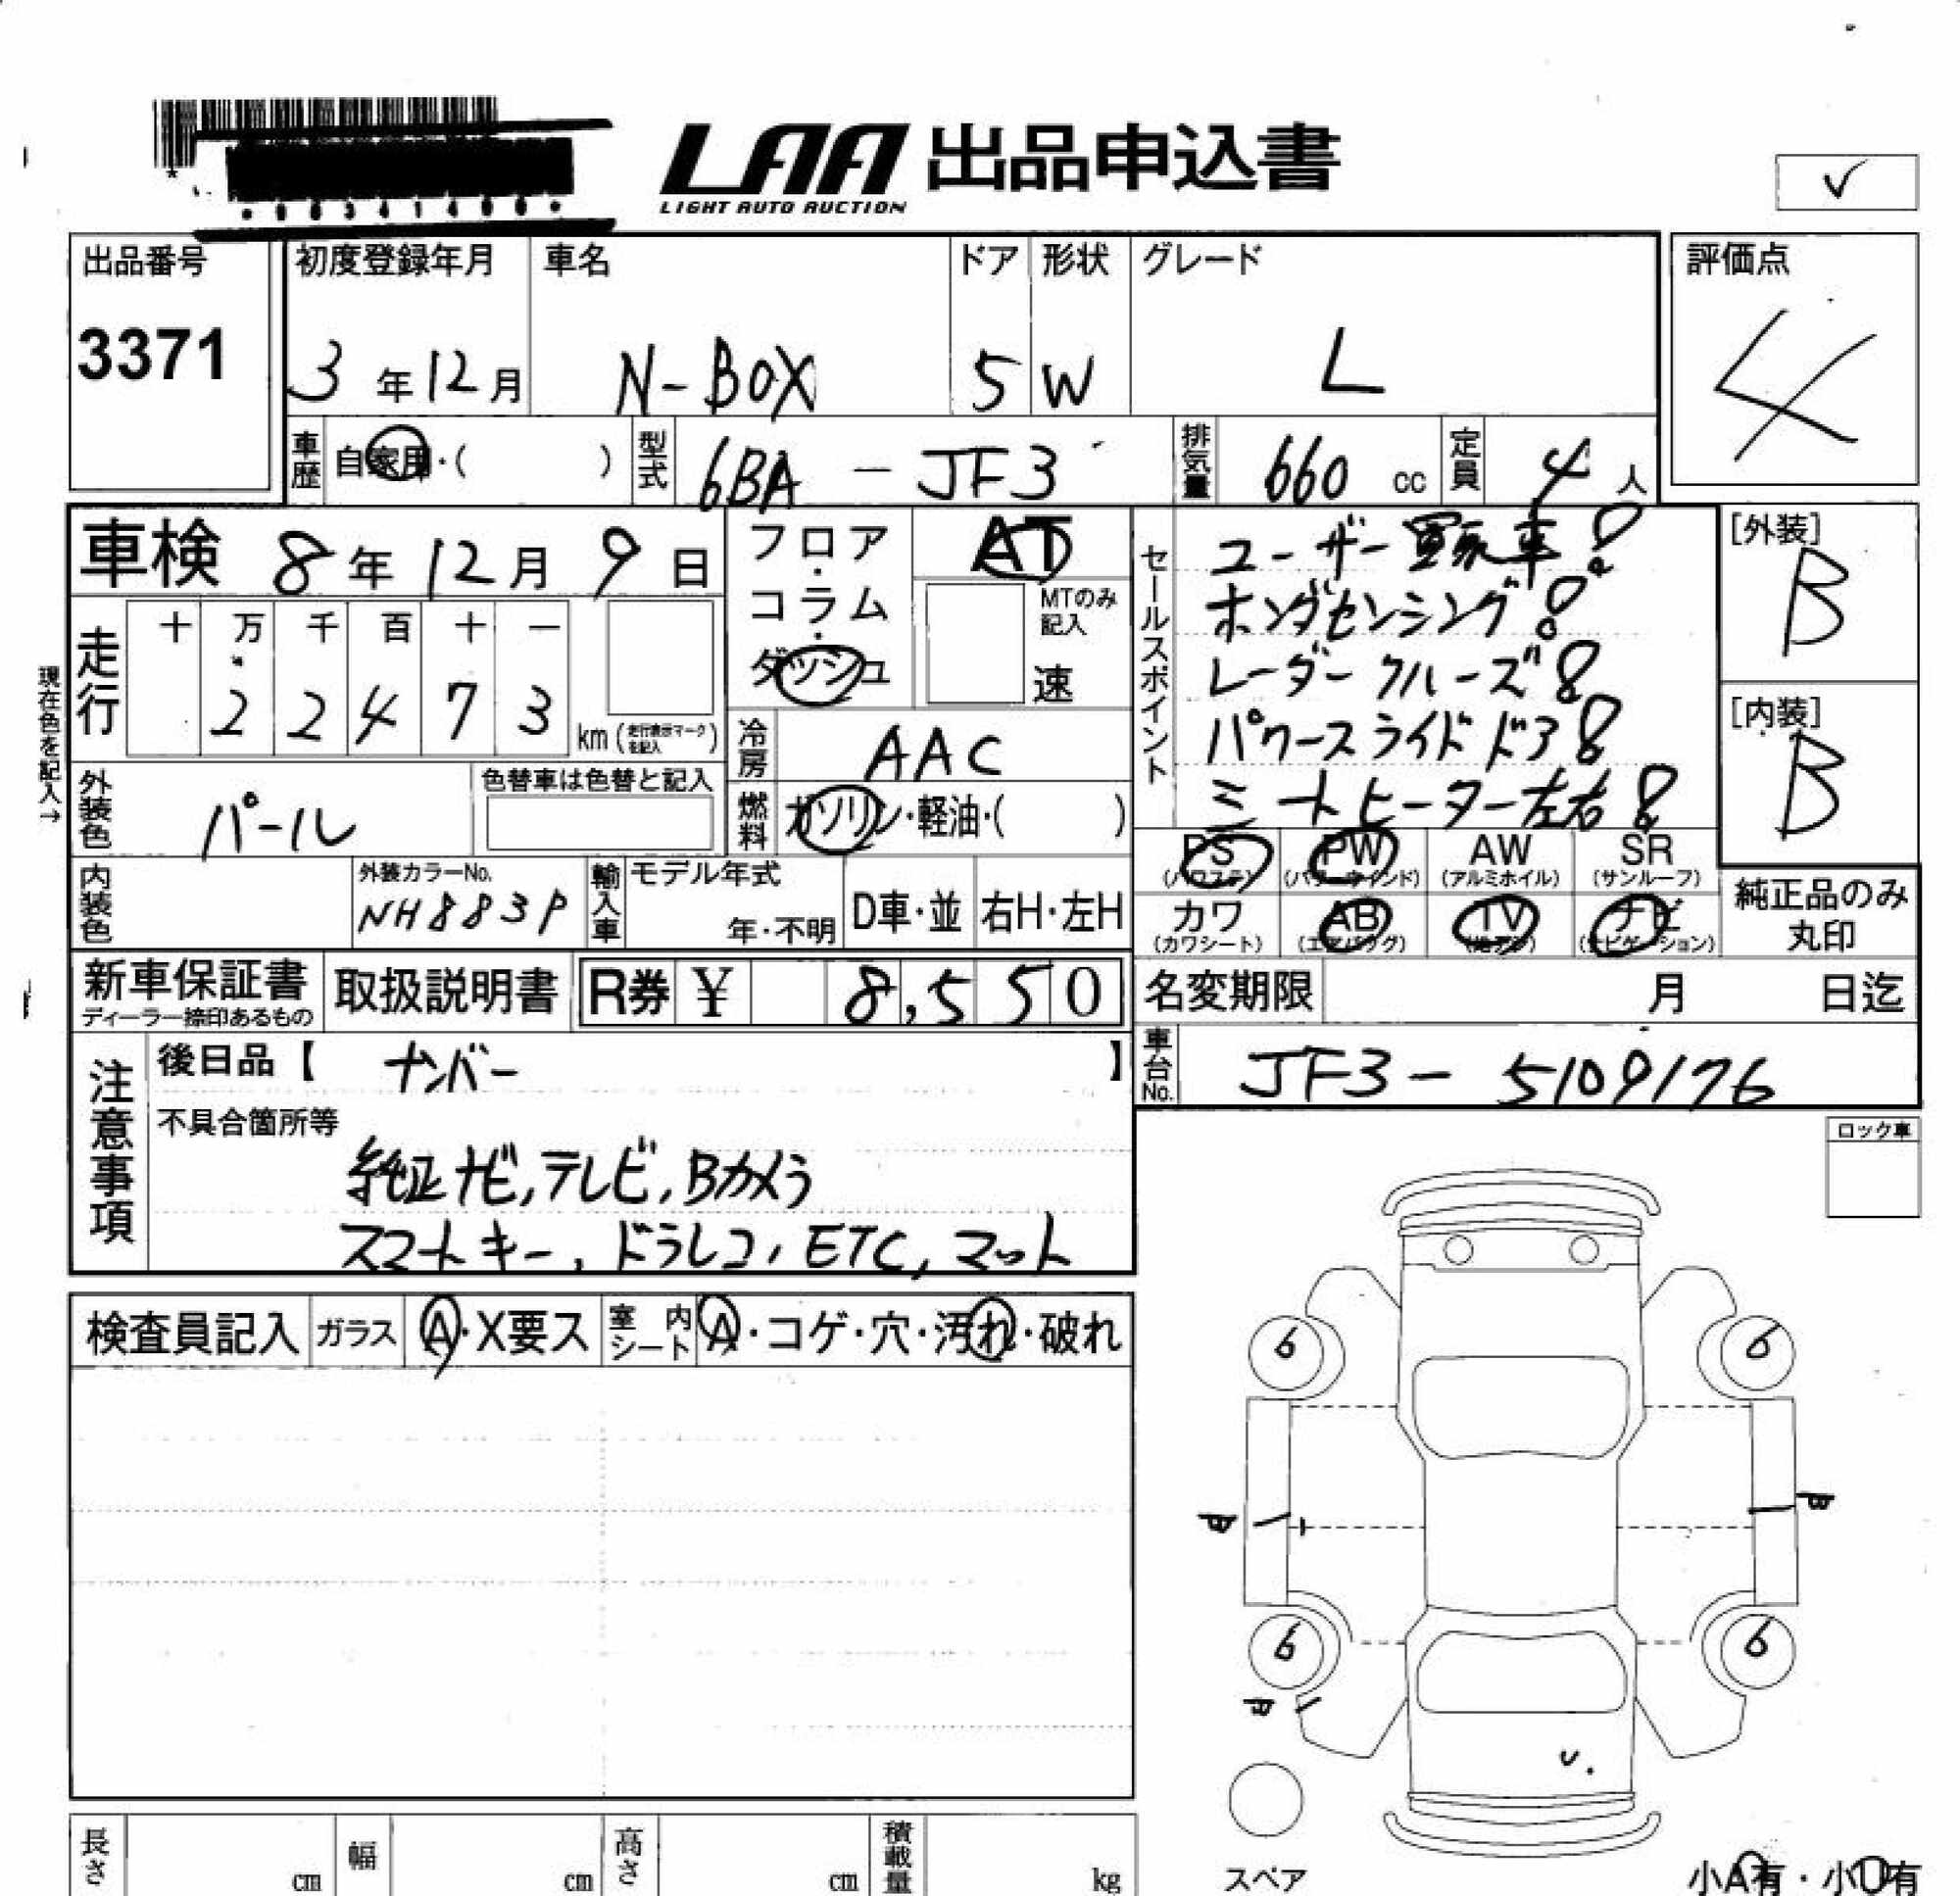 LAA 出品申込書
LIGHT AUTO AUCTION
出品番号 3371
初度登録年月 3年12月
車名 N-BOX
ドア 5
形状 W
グレード L
評価点 4
車歴 自家用・( )
型式 6BA - JF3
排気量 660 cc
定員 4人
車検 8年12月9日
フロア・コラム・ダッシュ
AT
MTのみ記入
速
セールスポイント
ユーザー買取車
ホンダセンシング
レーダークルーズ
パワースライドドア
シートヒーター左右
[外装] B
[内装] B
現在色を記入→
走行 十 万 千 百 十 一
2 2 4 7 3 km (走行表示マークを記入)
冷房 AAC
燃料 ガソリン・軽油・( )
外装色 パール
色替車は色替と記入
内装色
外装カラーNo. NH883P
輸入車 モデル年式 年・不明
D車・並 右H・左H
PS (パワステ) PW (パワーウインド) AW (アルミホイル) SR (サンルーフ)
カワ (カワシート) AB (エアバッグ) TV ナビ (ナビゲーション)
純正品のみ丸印
新車保証書 ディーラー捺印あるもの
取扱説明書
R券 ¥ 8,550
名変期限 月 日迄
車台No. JF3 - 5109176
注意事項
後日品【 ナンバー 】
不具合箇所等
純正ナビ, テレビ, Bカメラ
スマートキー, ドラレコ, ETC, マット
ロック車
検査員記入 ガラス A・X要ス 室内シート A・コゲ・穴・汚れ・破れ
6 6
6 6
スペア
小A有・小U有
長さ cm 幅 cm 高さ cm 積載量 kg